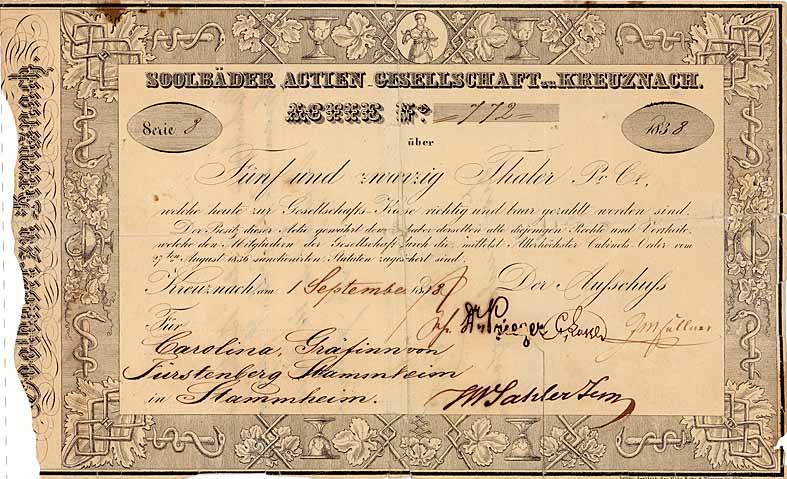 SOOLBÄDER ACTIEN-GESELLSCHAFT zu KREUZNACH.
ACTIE No. 772
Serie 8
1838
über
Fünf und zwanzig Thaler Pr. Ct.,
welche heute zur Gesellschafts-Kasse richtig und baar gezahlt worden sind.
Der Besitz dieser Actie gewährt dem Inhaber derselben alle diejenigen Rechte und Vortheile,
welche den Mitgliedern der Gesellschaft durch die mittelst Allerhöchster Cabinets-Order vom
27ten August 1836 sanctionirten Statuten zugesichert sind.
Kreuznach, am 1 September 1838
Der Ausschuss
Für
Dr. Prieger
Carolina, Gräfinn von
Fürstenberg Stammheim
in Stammheim.